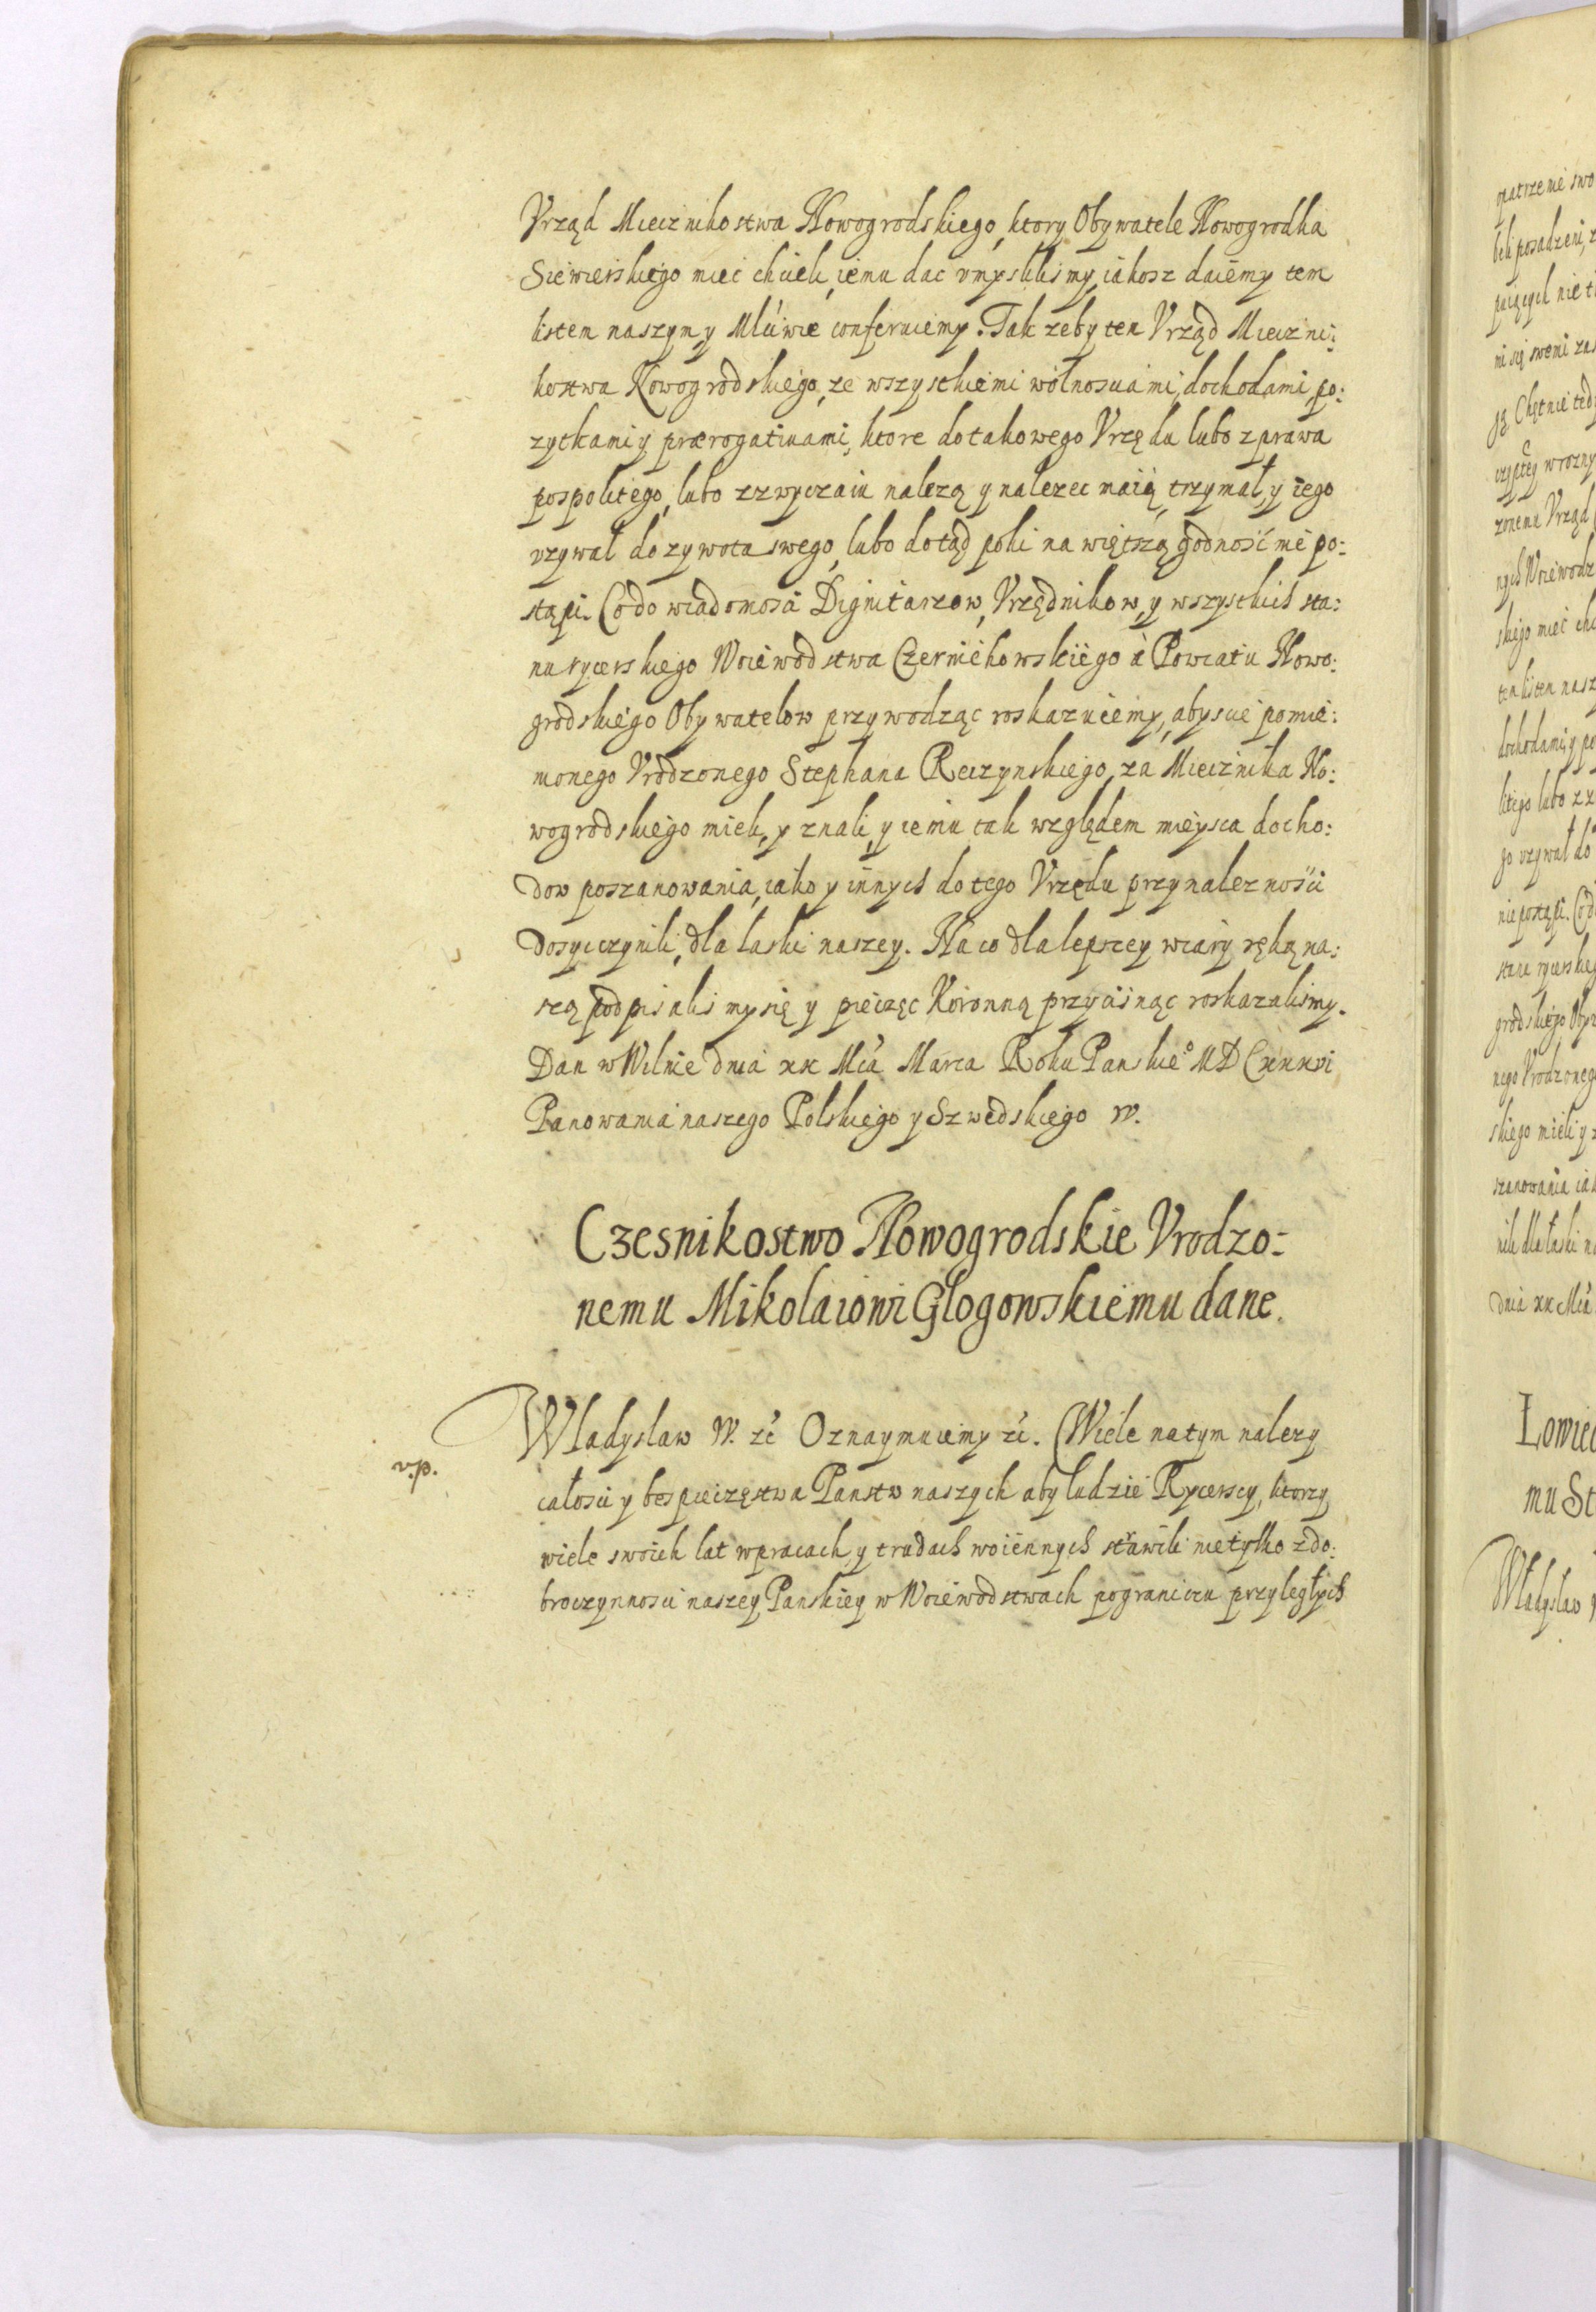 Vrząd Miecznikostwa Nowogrodskiego, ktory Obywatele Nowogrodka
Siewierskiego miec chcieli, iemu dac vmyslilismy, iakosz daiemy tem
listem naszym y Mściwie conferuiemy. Tak zeby ten Vrząd Mieczni:
kostwa Nowogrodskiego, ze wszystkiemi wolnosciami, dochodami, po:
zytkami y prærogatiuami, ktore do takowego Vrzędu lubo z prawa
pospolitego, lubo z zwyczaiu nalezą y nalezec maią, trzymał, y iego
vzywał do zywota swego, lubo dotąd poki na więtszą godność nie po:
stąpi. Co do wiadomości Dignitarzow, Vrzędnikow, y wszystkich sta:
nu rycerskiego Woiewodstwa Czerniehowskiego á Powiatu Nowo:
grodskiego Obywatelow przywodząc roskazuiemy, abyscie pomie:
nionego Vrodzonego Stephana Reczynskiego, za Miecznika No:
wogrodskiego mieli, y znali, y iemu tak względem mieysca docho:
dow poszanowania, iako y innych do tego Vrzędu przynaleznośći
dosyc czynili, dla łaski naszey. Na co dla lepszey wiary ręką na:
szą podpisalismy się y pieczęc Koronną przyciśnąc roskazalismy.
Dan w Wilnie dnia xx Mcá Marca Roku Panskie:º MDCxxxvi
Panowania naszego Polskiego y Szwedskiego IV.
Czesnikostwo Nowogrodskie Vrodzo:
nemu Mikolaiowi Glogowskiemu dane.
Wladyslaw IV. zć Oznaymuiemy zć. Wiele na tym nalezy
v.p.
całosci y bespieczęstwa Panstw naszych aby ludzie Rycerscy, ktorzy
wiele swoich lat w pracach y trudach woiennych strawili nie tylko z do:
broczynnosci naszey Panskiey w Woiewodstwach pograniczu przyległych